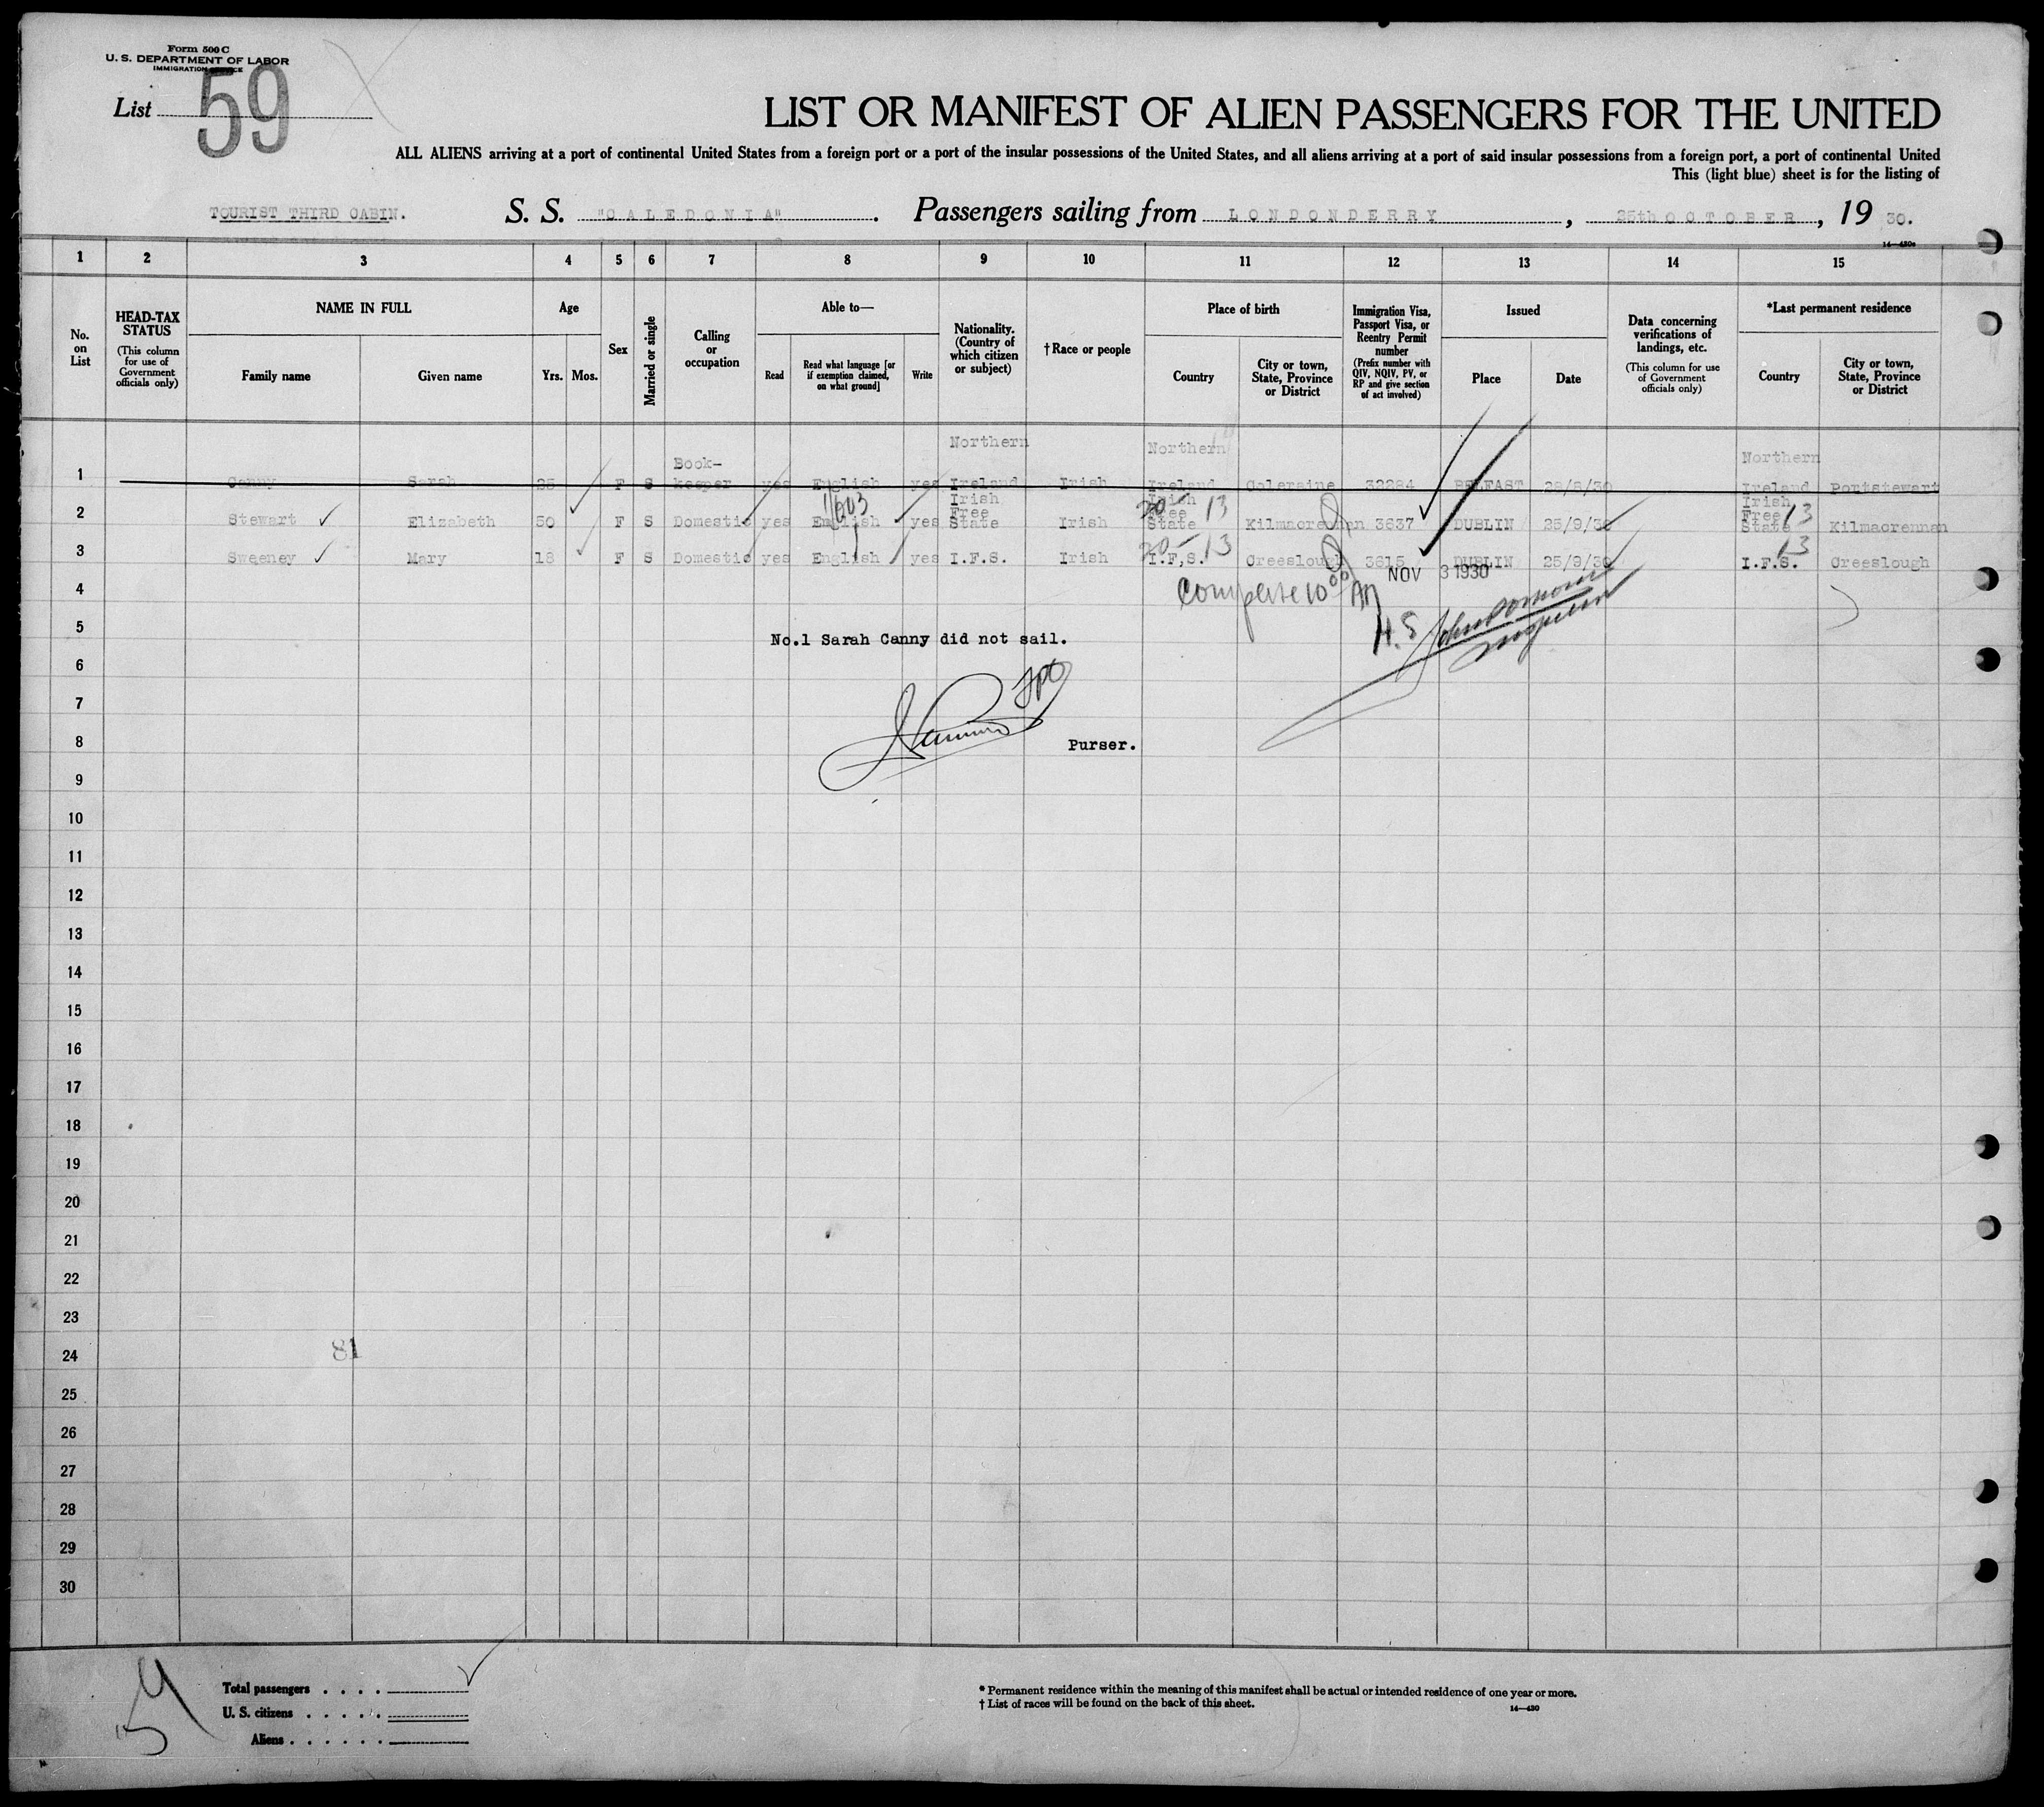 Form 500 C
U. S. DEPARTMENT OF LABOR
IMMIGRATION SERVICE
List 59
LIST OR MANIFEST OF ALIEN PASSENGERS FOR THE UNITED
ALL ALIENS arriving at a port of continental United States from a foreign port or a port of the insular possessions of the United States, and all aliens arriving at a port of said insular possessions from a foreign port, a port of continental United
This (light blue) sheet is for the listing of
TOURIST THIRD CABIN. S. S. "CALEDONIA". Passengers sailing from LONDONDERRY, 25th OCTOBER, 19 30.
1 2 3 4 5 6 7 8 9 10 11 12 13 14 15
No. on List
HEAD-TAX STATUS
(This column for use of Government officials only)
NAME IN FULL
Family name Given name
Age
Yrs. Mos.
Sex
Married or single
Calling or occupation
Able to—
Read Read what language [or if exemption claimed, on what ground] Write
Nationality. (Country of which citizen or subject)
† Race or people
Place of birth
Country City or town, State, Province or District
Immigration Visa, Passport Visa, or Reentry Permit number
(Prefix number with QIV, NQIV, PV, or RP and give section of act involved)
Issued
Place Date
Data concerning verifications of landings, etc.
(This column for use of Government officials only)
*Last permanent residence
Country City or town, State, Province or District
1 Canny Sarah 25 F S Book-keeper yes English yes Northern Ireland Irish Northern Ireland Coleraine 32284 BELFAST 28/8/30 Northern Ireland Portstewart
2 Stewart Elizabeth 50 F S Domestic yes English yes Irish Free State Irish Irish Free State 13 Kilmacrennan 3637 DUBLIN 25/9/30 Irish Free State 13 Kilmacrennan
3 Sweeney Mary 18 F S Domestic yes English yes I.F.S. Irish 20 - 13 I.F.S. Creeslough 3615 DUBLIN 25/9/30 13 I.F.S. Creeslough
NOV 3 1930
4
Complete 10 00 AM
5
H. S
No.1 Sarah Canny did not sail.
6
7
8
Purser.
9
10
11
12
13
14
15
16
17
18
19
20
21
22
23
24
81
25
26
27
28
29
30
Total passengers . . . .
U. S. citizens . . . . .
Aliens . . . . . .
* Permanent residence within the meaning of this manifest shall be actual or intended residence of one year or more.
† List of races will be found on the back of this sheet.
14—430